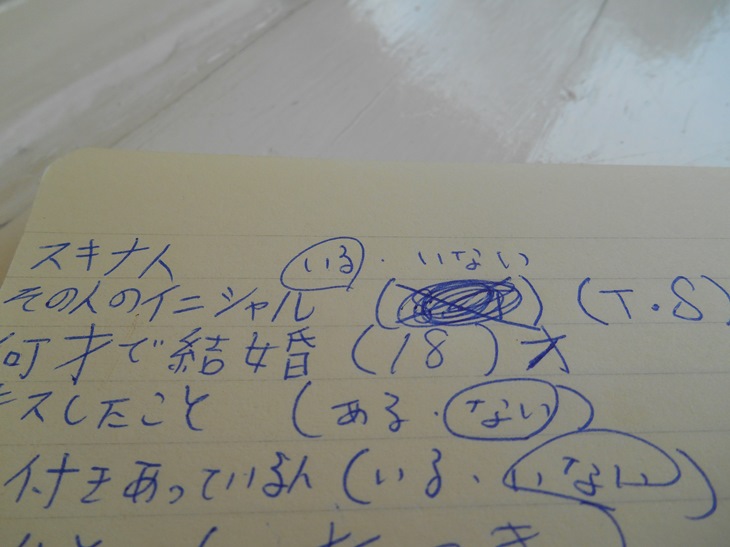 スキナ人 いる・いない
その人のイニシャル () (T.S)
何才で結婚 (18)才
キスしたこと (ある・ない)
付きあっている人 (いる・いない)